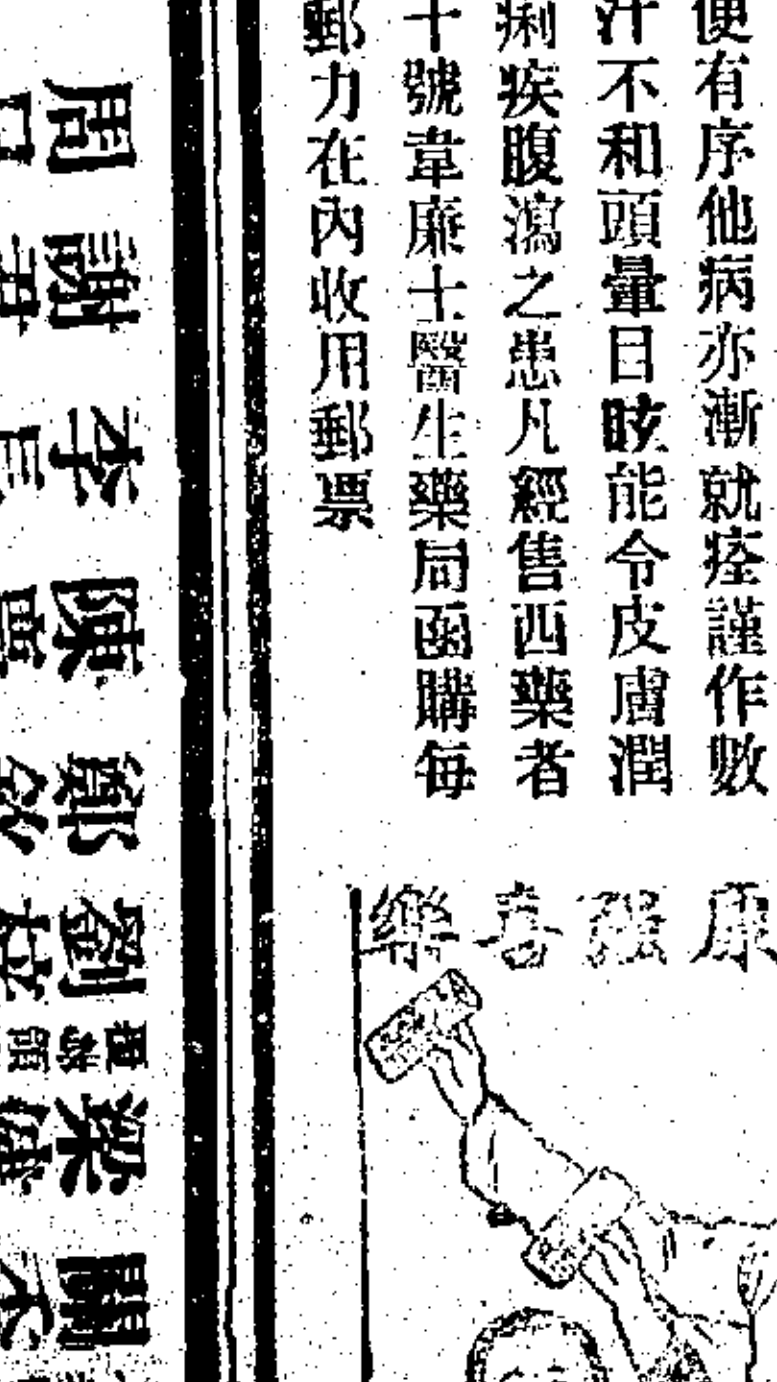 便有序他病亦漸就痊謹作數
汗不和頭暈目眩能令皮膚潤
痢疾腹瀉之患凡經售西藥者
十號韋廉士醫生藥局函購每
郵力在內收用郵票
康強喜樂
周謝李陳鄭劉梁關